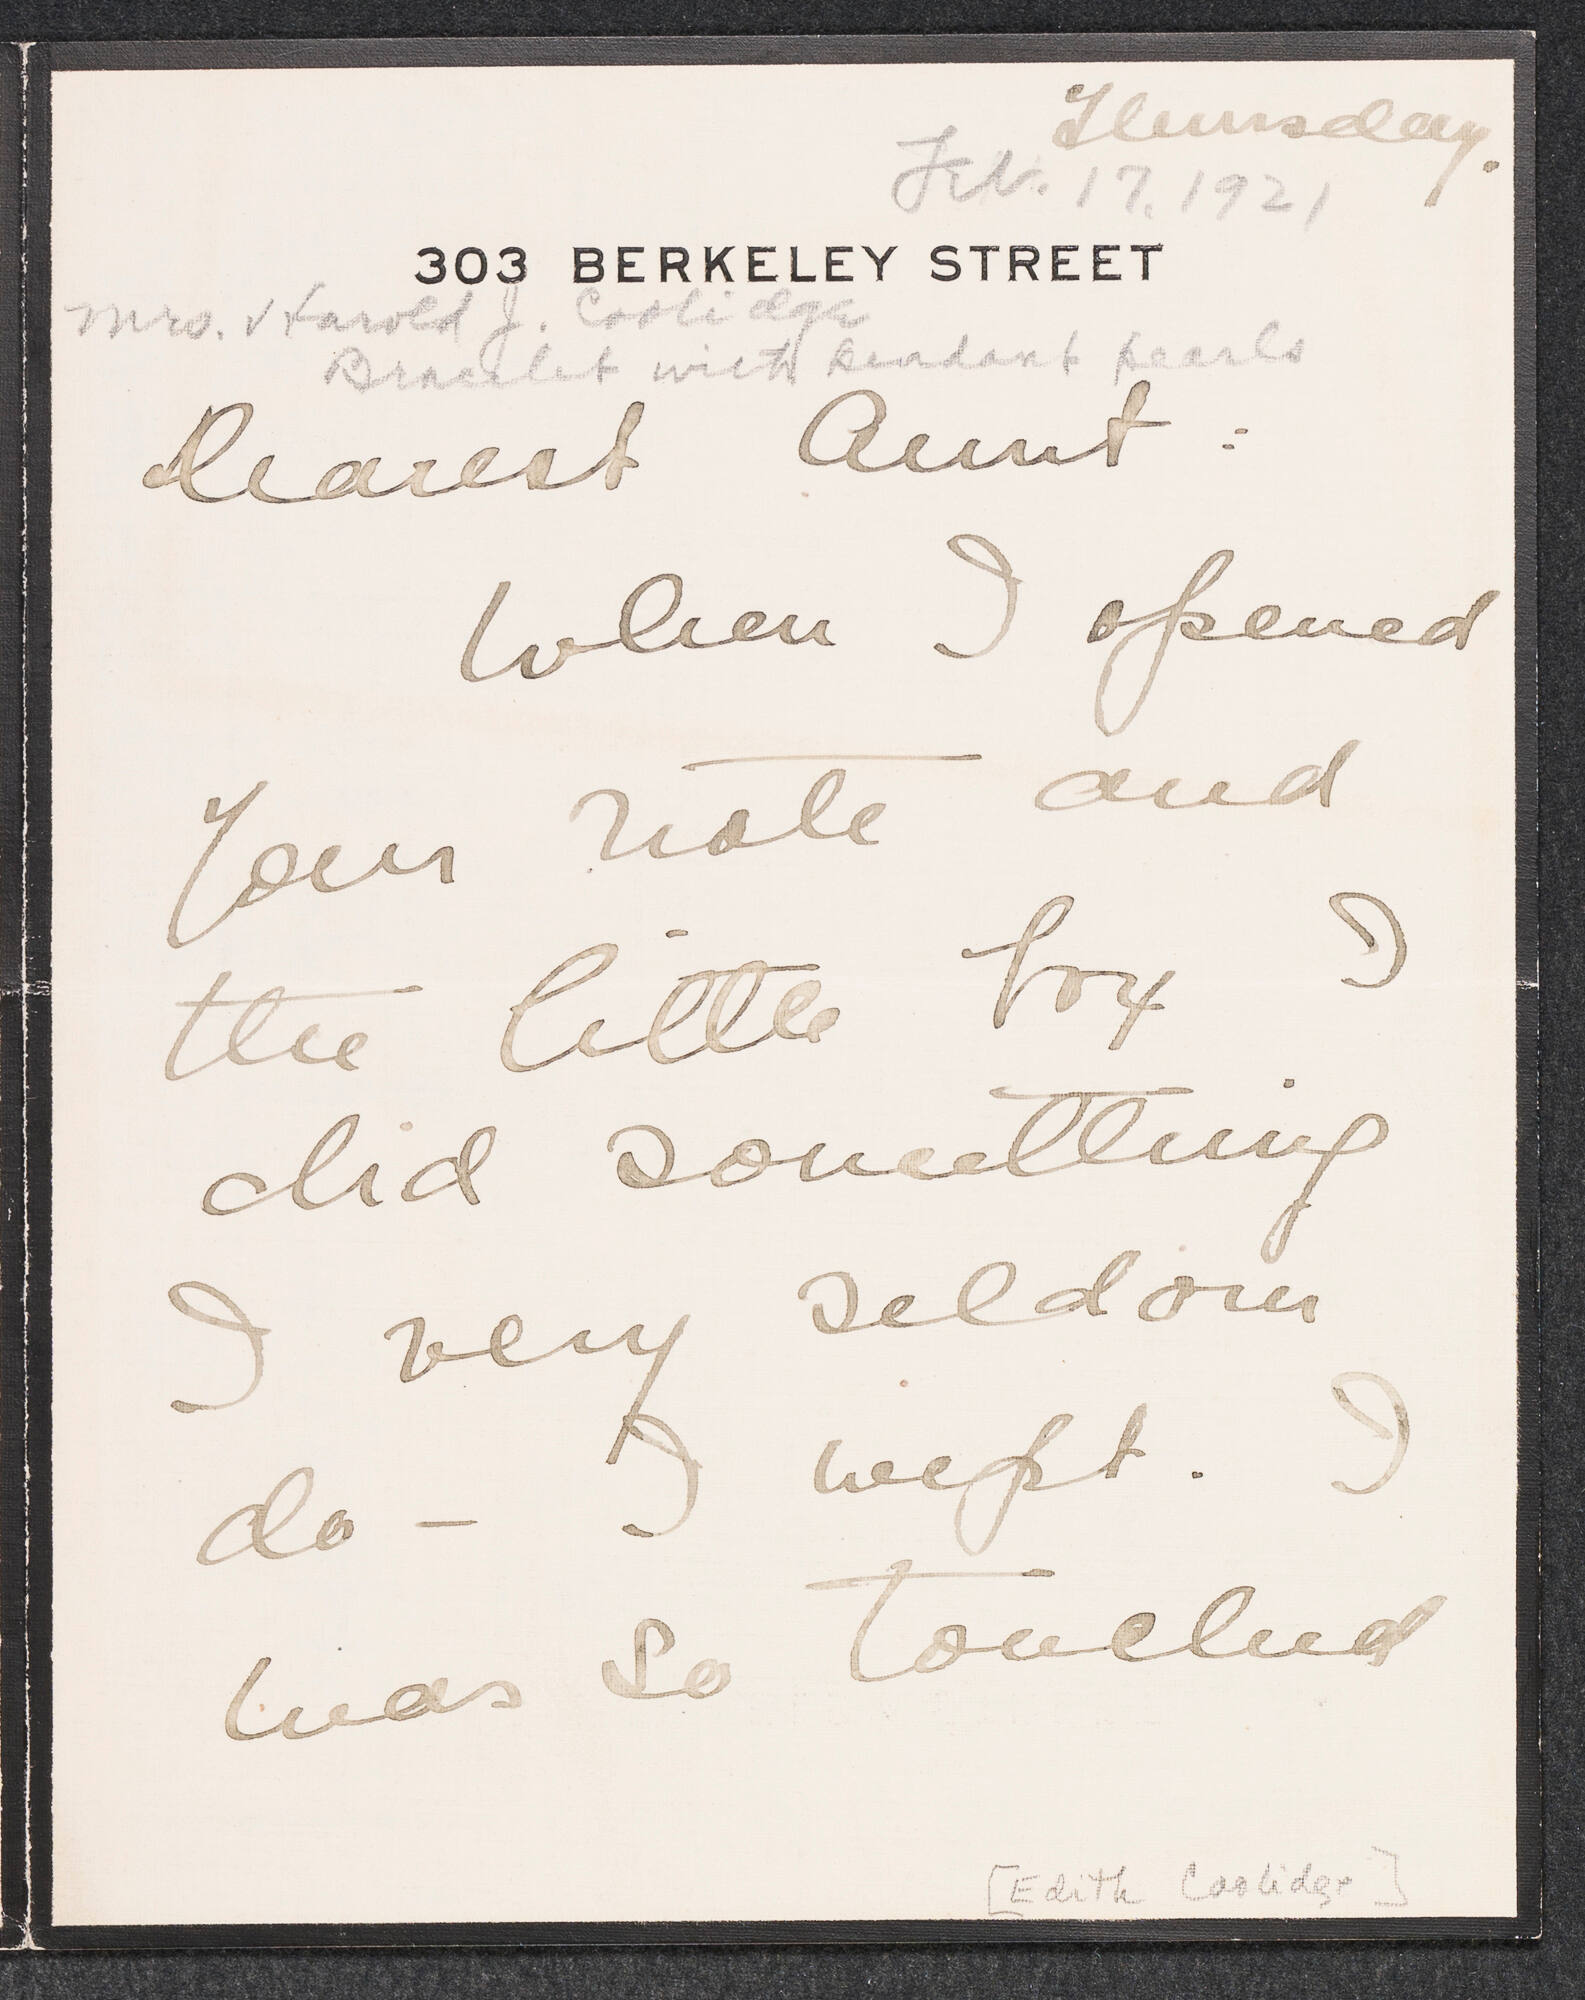 Thursday.
Feb. 17, 1921
303 BERKELEY STREET
Mrs. Harold J. Coolidge
Bracelet with pendant pearls
Dearest Aunt:
When I opened
your note and
the little box I
did something
I very seldom
do - I wept. I
was so touched
[Edith Coolidge]